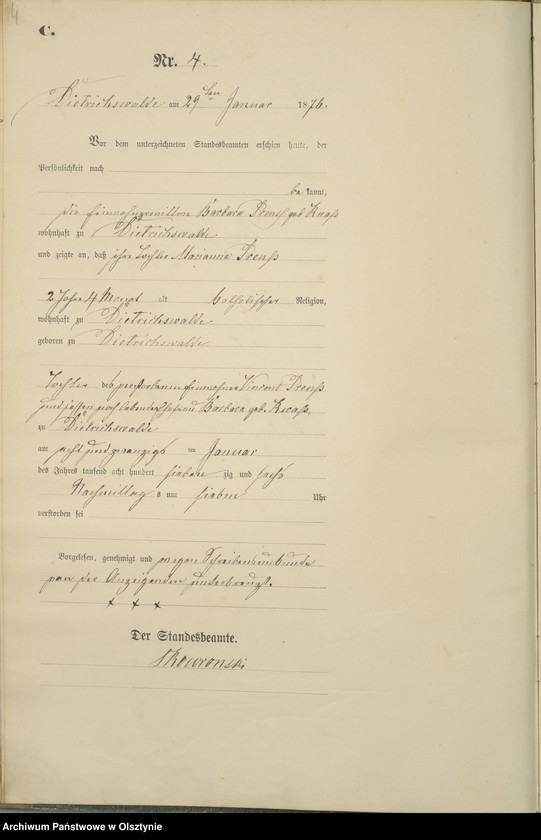 4
C.
Nr. 4.
Dietrichswalde am 29ten Januar 1876.
Vor dem unterzeichneten Standesbeamten erschien heute, der
Persönlichkeit nach
be kannt,
die Barbara Preuß geb. Knaß
wohnhaft zu Dietrichswalde
und zeigte an, daß ihre Tochter Marianna Preuß
2 Jahre 4 Monat alt katholischer Religion,
wohnhaft zu Dietrichswalde
geboren zu Dietrichswalde
Tochter des verstorbenen Einwohner Vincent Preuß
und dessen noch lebende Ehefrau Barbara geb. Knaß,
zu Dietrichswalde
am acht und zwanzigs ten Januar
des Jahres tausend acht hundert sieben zig und sechs
Nachmittag s um sieben Uhr
verstorben sei
Vorgelesen, genehmigt und wegen Schreibensunkunde
von der Anzeigenden unterkreuzt.
+ + +
Der Standesbeamte.
Skowronski
Archiwum Państwowe w Olsztynie